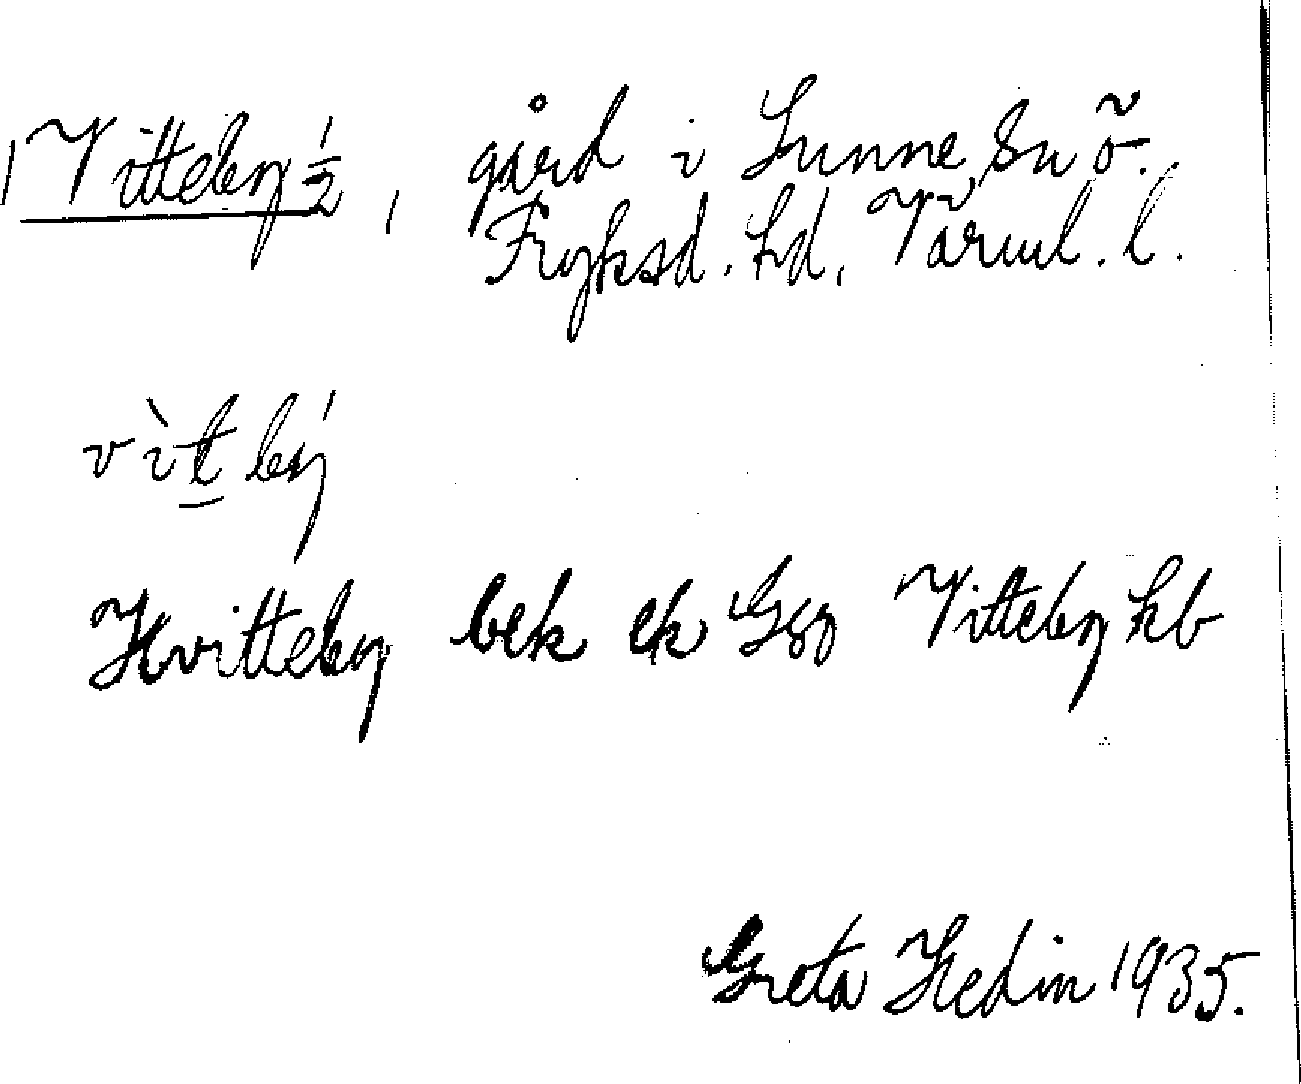 Vitteby ½, gård i Sunne sn ö.
Fryksd. hd, Värml. l.
vìt bý
Hvitteby bek ek Gso Vitteby kb
Greta Hedin 1935.